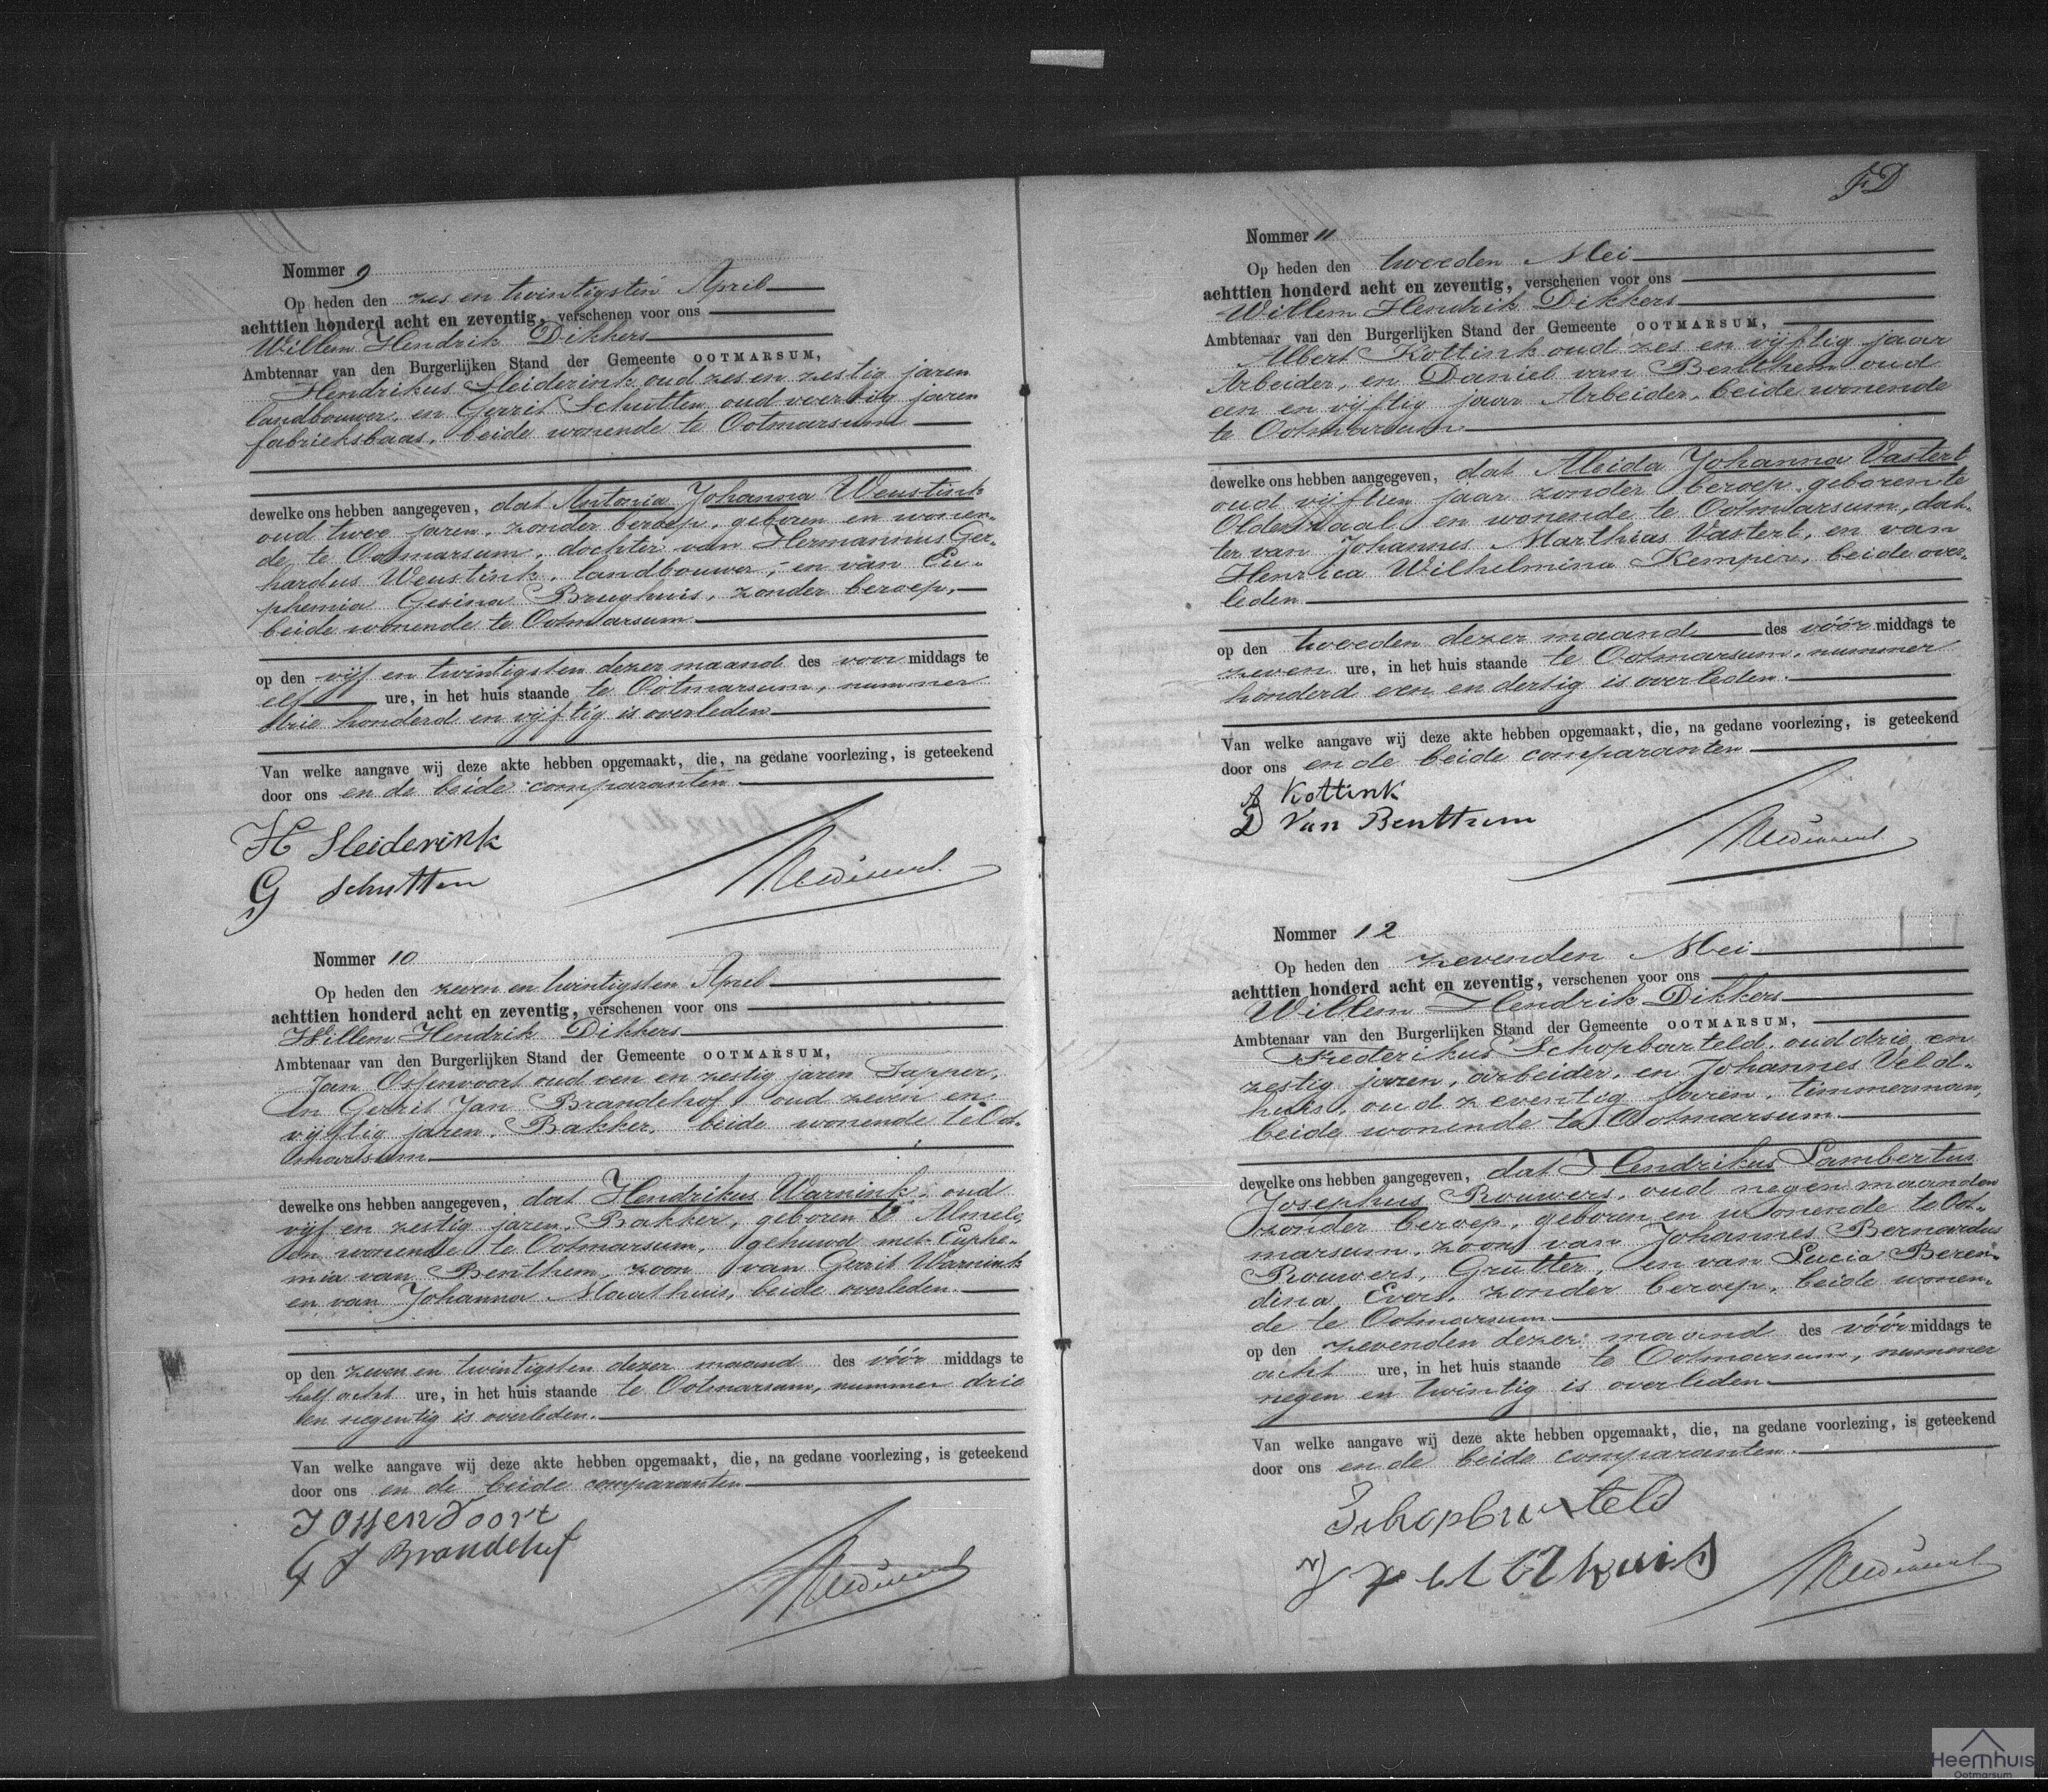 Nommer 9
Op heden den zes en twintigsten April
achttien honderd acht en zeventig, verschenen voor ons
Willem Hendrik Dikkers
Ambtenaar van den Burgerlijken Stand der Gemeente OOTMARSUM,
Hendrikus Sleiderink oud zes en zestig jaren
landbouwer, en Gerrit Schutten oud veertig jaren
fabrieksbaas, beide wonende te Ootmarsum
dewelke ons hebben aangegeven, dat Antonia Johanna Weustink
oud twee jaren, zonder beroep, geboren en wonen-
de te Ootmarsum, dochter van Hermannus Ger-
hardus Weustink, landbouwer, en van Eu-
phemia Gesina Brughuis, zonder beroep,
beide wonende te Ootmarsum
op den vijf en twintigsten dezer maand des voor middags te
elf ure, in het huis staande te Ootmarsum, nummer
drie honderd en vijftig is overleden
Van welke aangave wij deze akte hebben opgemaakt, die, na gedane voorlezing, is geteekend
door ons en de beide comparanten
H Sleiderink
G Schutten
Nommer 10
Op heden den zeven en twintigsten April
achttien honderd acht en zeventig, verschenen voor ons
Willem Hendrik Dikkers
Ambtenaar van den Burgerlijken Stand der Gemeente OOTMARSUM,
Jan Ossenvoort oud een en zestig jaren Tapper,
en Gerrit Jan Brandehof oud zeven en
vijftig jaren, Bakker, beide wonende te Oot-
marsum
dewelke ons hebben aangegeven, dat Hendrikus Warnink, oud
vijf en zestig jaren, Bakker, geboren te Almelo,
en wonende te Ootmarsum, gehuwd met Euphe-
mia van Benthem, zoon van Gerrit Warnink
en van Johanna Maathuis, beide overleden.
op den zeven en twintigsten dezer maand des vóór middags te
half acht ure, in het huis staande te Ootmarsum, nummer drie
en negentig is overleden.
Van welke aangave wij deze akte hebben opgemaakt, die, na gedane voorlezing, is geteekend
door ons en de beide comparanten
J Ossenvoort
G J Brandehof
FD
Nommer 11
Op heden den tweeden Mei
achttien honderd acht en zeventig, verschenen voor ons
Willem Hendrik Dikkers
Ambtenaar van den Burgerlijken Stand der Gemeente OOTMARSUM,
Albert Kottink oud zes en vijftig jaar
Arbeider, en Daniel van Benthem oud
een en vijftig jaar Arbeider, beide wonende
te Ootmarsum
dewelke ons hebben aangegeven, dat Aleida Johanna Vastert
oud vijftien jaar zonder beroep, geboren te
Oldenzaal en wonende te Ootmarsum, doch-
ter van Johannes Marthias Vastert, en van
Henrica Wilhelmina Kemper, beide over-
leden
op den tweeden dezer maand des vóór middags te
zeven ure, in het huis staande te Ootmarsum, nummer
honderd een en dertig is overleden.
Van welke aangave wij deze akte hebben opgemaakt, die, na gedane voorlezing, is geteekend
door ons en de beide comparanten
A Kottink
D Van Benthem
Nommer 12
Op heden den zevenden Mei
achttien honderd acht en zeventig, verschenen voor ons
Willem Hendrik Dikkers
Ambtenaar van den Burgerlijken Stand der Gemeente OOTMARSUM,
Frederikus Schopbarteld, oud drie en
zestig jaren, arbeider, en Johannes Veld-
huis, oud zeventig jaren, timmerman,
beide wonende te Ootmarsum
dewelke ons hebben aangegeven, dat Hendrikus Lambertus
Josephus Rouwers, oud negen maanden
zonder beroep, geboren en wonende te Oot-
marsum, zoon van Johannes Bernardus
Rouwers, Grutter, en van Lucia Beren-
dina Evers, zonder beroep, beide wonen-
de te Ootmarsum
op den zevenden dezer maand des vóór middags te
acht ure, in het huis staande te Ootmarsum, nummer
negen en twintig is overleden.
Van welke aangave wij deze akte hebben opgemaakt, die, na gedane voorlezing, is geteekend
door ons en de beide comparanten.
Heemhuis
Ootmarsum